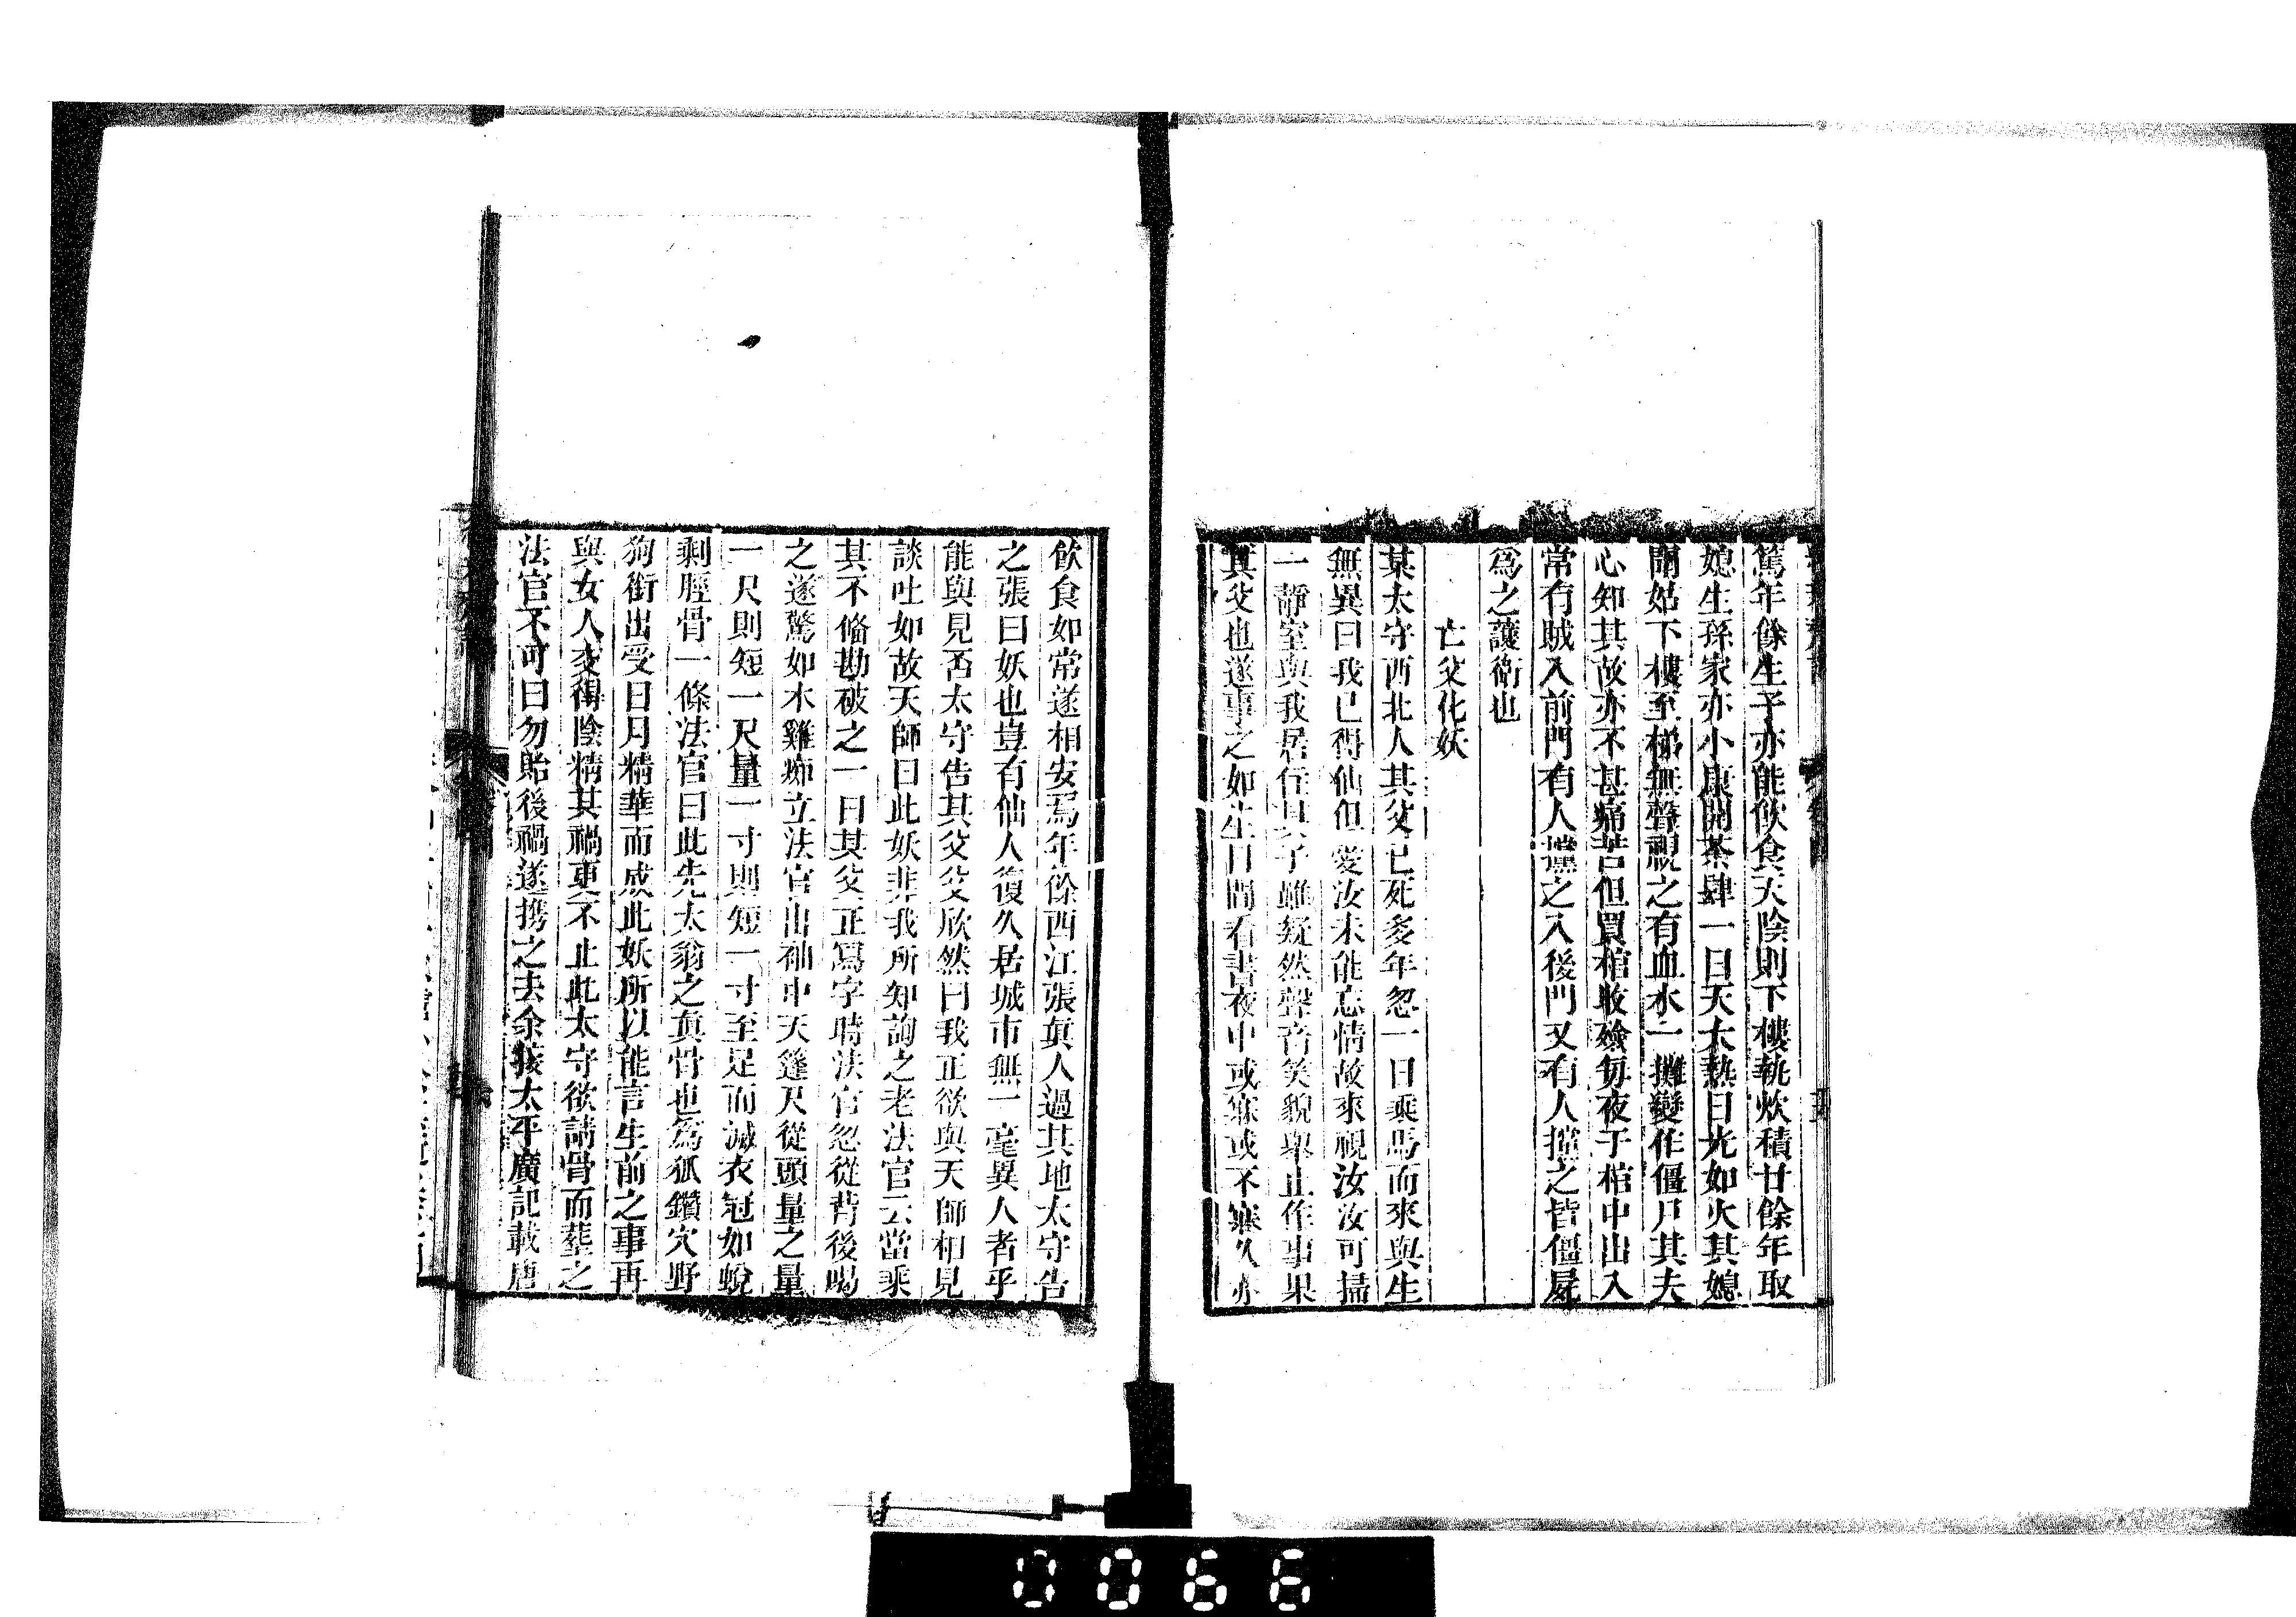 篤年餘生子亦能飲食天陰則下樓執炊積廿餘年取
媳生孫家亦小康開茶肆一日天大熱日光如火其媳
聞姑下樓至梯無聲視之有血水一攤變作僵尸其夫
心知其故亦不甚痛苦但買棺收殮每夜于棺中出入
常有賊入前門有人攩之入後門又有人攩之皆僵屍
爲之護衛也
亡父化妖
某太守西北人其父已死多年忽一日乘馬而來與生
無異曰我已得仙但愛汝未能忘情故來視汝汝可掃
一靜室與我居住其子雖疑然聲音笑貌舉止作事果
眞父也遂事之如生日間看書夜中或寐或不寐久亦
飲食如常遂相安焉年餘西江張眞人過其地太守告
之張曰妖也豈有仙人復久居城市無一毫異人者乎
能與見否太守告其父父欣然曰我正欲與天師相見
談吐如故天師曰此妖非我所知詢之老法官云當乘
其不備勘破之一日其父正寫字時法官忽從背後喝
之遂驚如木雞癡立法官出袖中天篷尺從頭量之量
一尺則短一尺量一寸則短一寸至足而滅衣冠如蛻
剩脛骨一條法官曰此先太翁之眞骨也爲狐鑽穴野
狗銜出受日月精華而成此妖所以能言生前之事再
與女人交得陰精其禍更不止此太守欲請骨而葬之
法官不可曰勿貽後禍遂攜之去余按太平廣記載唐
0066